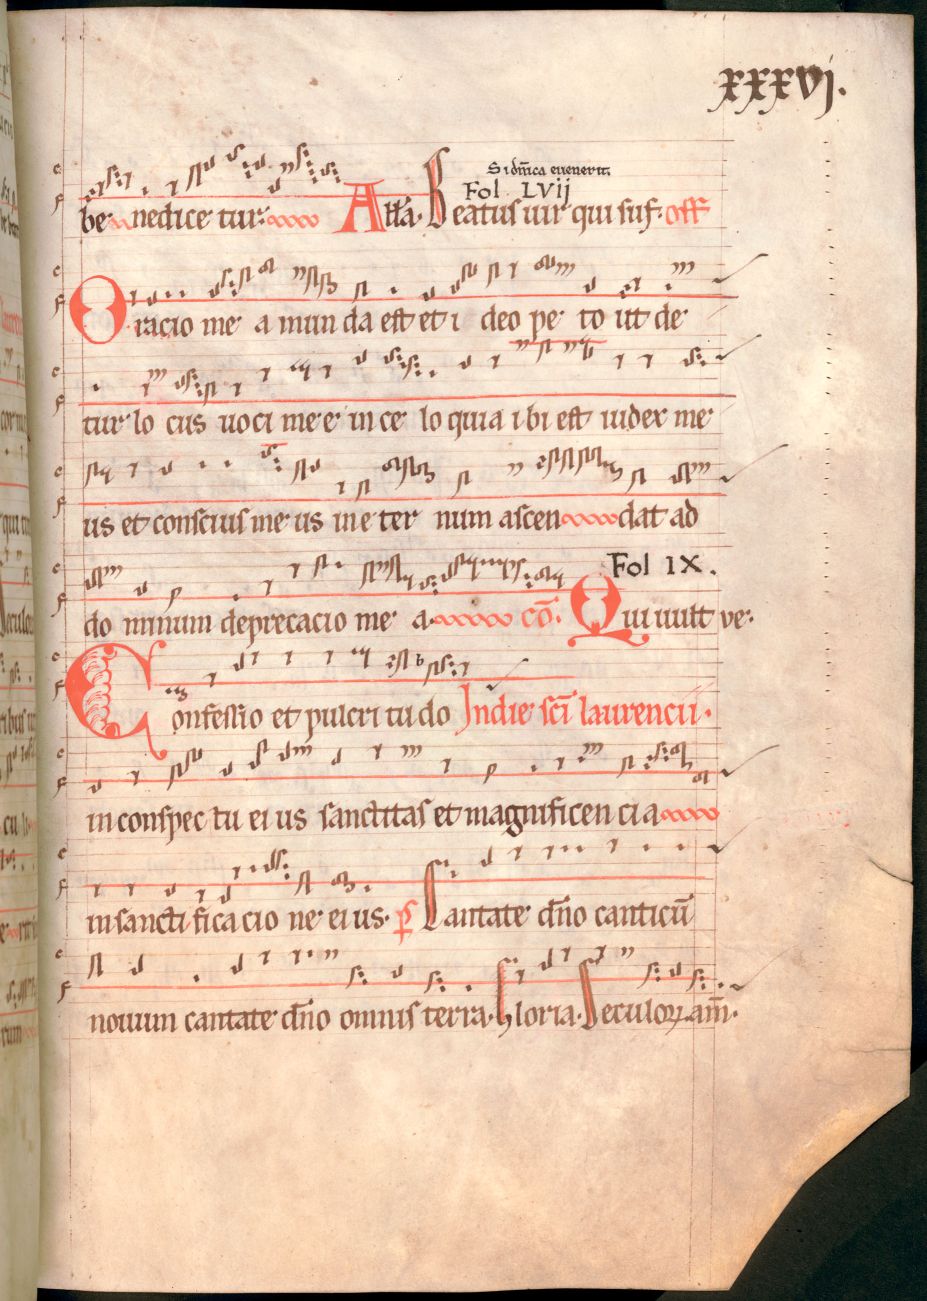 xxxvj.
Si dn̄ica euenerit
Fol LVij
be nedice tur. All'a. Beatus uir qui suf. off
Oracio me a mun da est et i deo pe to ut de
tur lo cus uoci me e in ce lo quia i bi est iudex me
us et conscius me us in e ter num ascen dat ad
Fol IX.
do minum deprecacio me a. co. Qui uult ve.
Confessio et pulcri tu do In die sc̄i laurencii.
in conspec tu ei us sanctitas et magnificen ci a
in sancti fica cio ne ei us. ps Cantate dn̄o canticū
nouum cantate dn̄o omnis terra. Gloria. Seculoꝝ am̄.